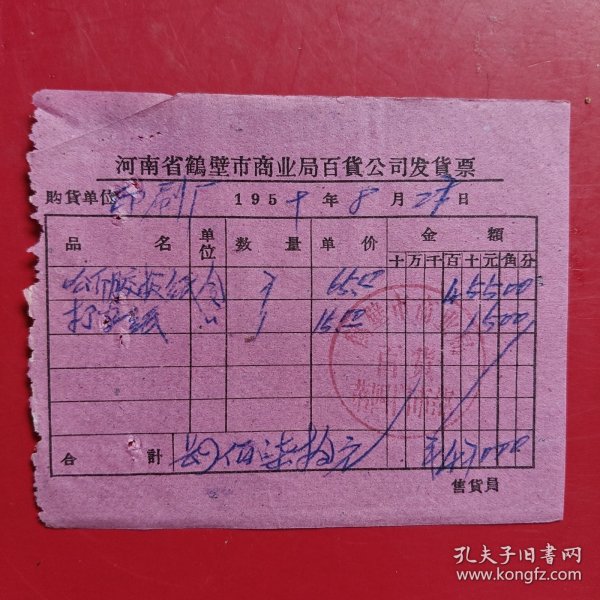 河南省鶴壁市商业局百貨公司发貨票
購貨单位 印刷厂 195 年 8 月 27 日
品名 单位 数量 单价 金額
十万千百十元角分
胶板纸 令 7 65.00 45500
打字纸 〃 1 15.00 1500
合計 肆佰柒拾元 ¥47000
售貨員
孔夫子旧书网
www.kongfz.com